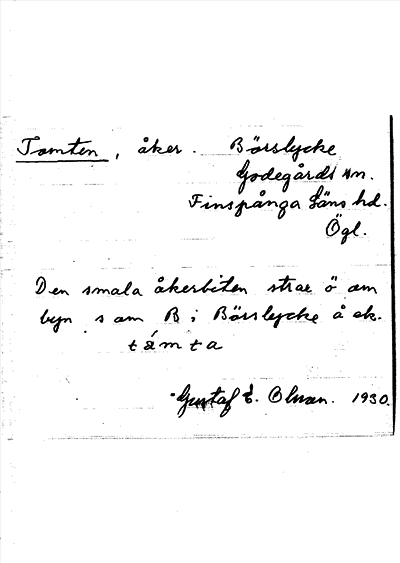 Tomten, åker. Börslycke
Godegårds sn.
Finspånga läns hd.
Ögl.
Den smala åkerbiten strax ö om
byn s om B i Börslycke å ek.
támta
Gustaf E. Olsson. 1930.